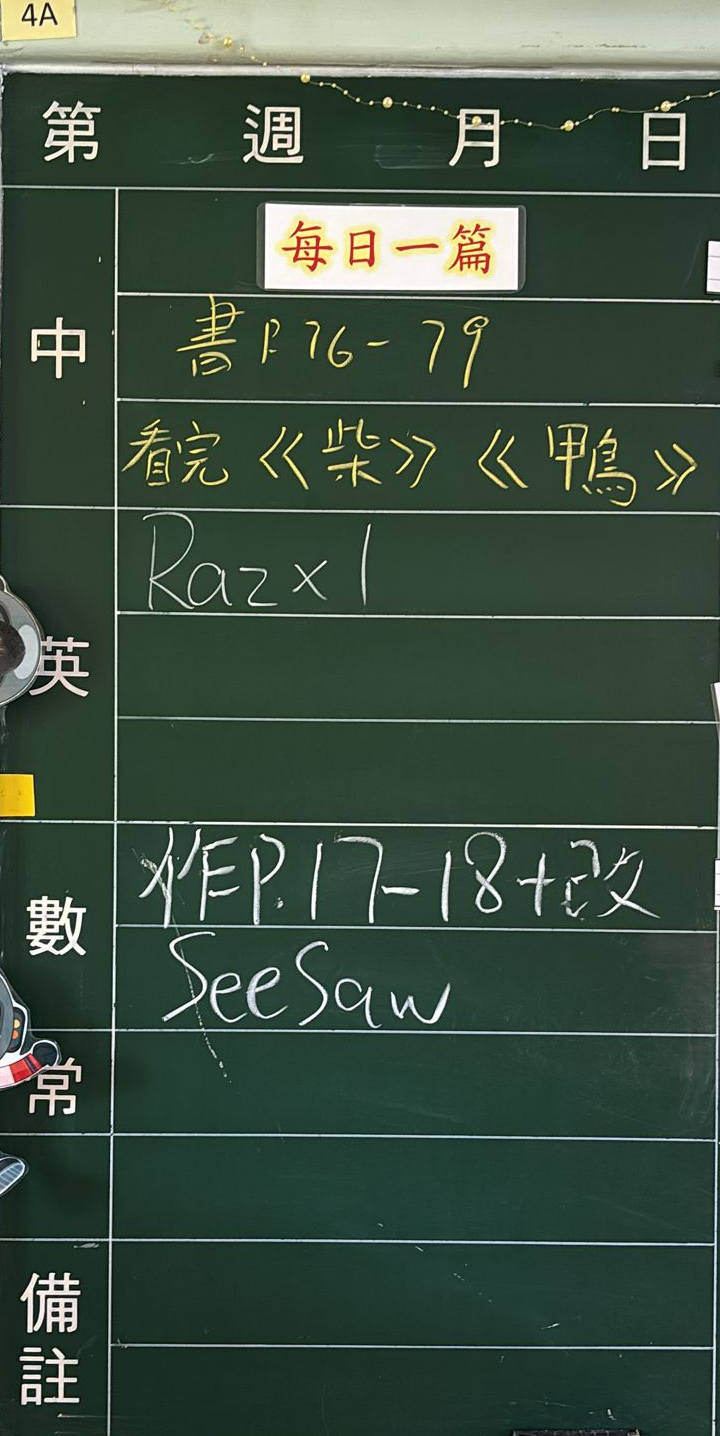 4A
第 週 月 日
每日一篇
中
書 P.76-79
看完《柴》《鴨》
英
Raz x 1
數
作P.17-18+改
SeeSaw
常
備註